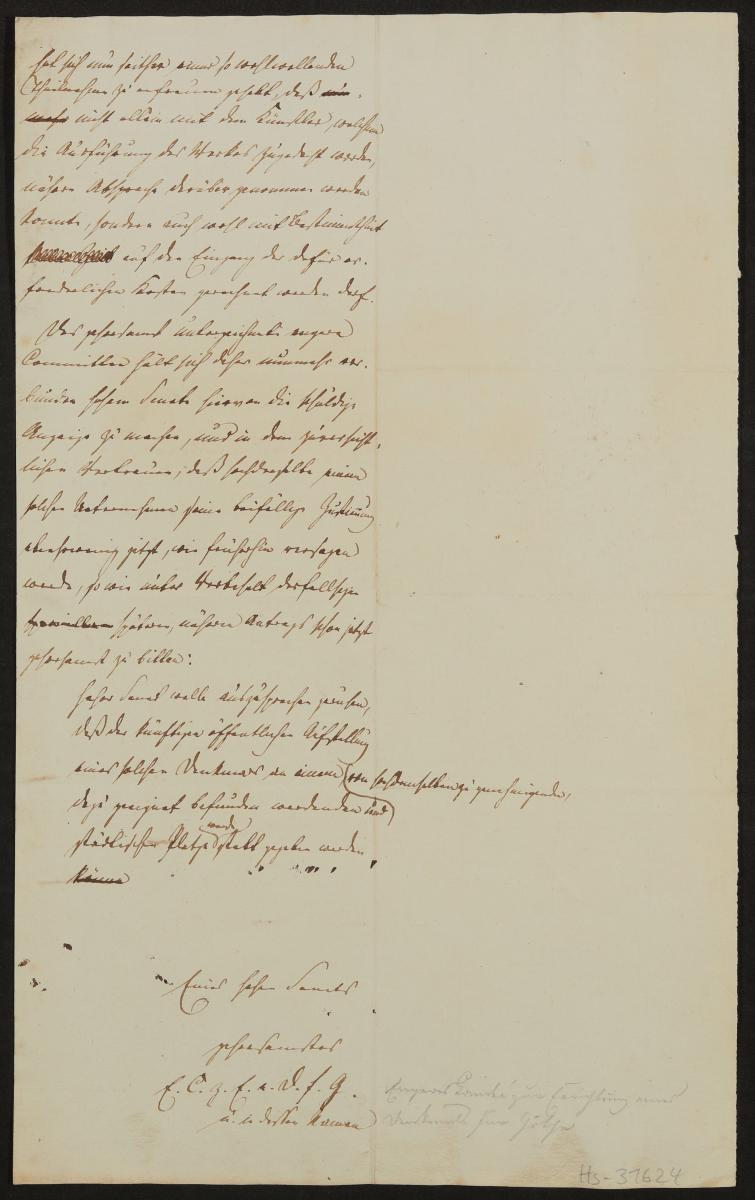 hat sich nun seither einer so wohlwollenden
Theilnahme zu erfreuen gehabt, daß nun-
mehr nicht allein mit dem Künstler, welchem
die Ausführung des Werkes zugedacht worden,
nähere Absprache darüber genommen werden
konnte, sondern auch wohl mit Bestimmtheit
auf den Eingang der dafür er-
forderlichen Kosten gerechnet werden darf.
Das gehorsamst unterzeichnete engere
Committee hält sich daher nunmehr ver-
bunden hohem Senate hiervon die schuldige
Anzeige zu machen, und in dem zuversicht-
lichen Vertrauen, daß hochderselbe einem
solchen Unternehmen seine beifällige Zustimmung
ebensowenig jetzt, wie früherhin versagen
werde, so wie unter Vorbehalt desfallsigen
speciellen spätern, nähern Antrags schon jetzt
gehorsamst zu bitten:
Hoher Senat wolle auszusprechen geruhen,
daß der künftigen öffentlichen Aufstellung
eines solchen Denkmals an einem (von hochdemselben zu genehmigenden,
dazu geeignet befunden werdenden und)
städtischen Platze statt gegeben werden
werde
könne
Eines hohen Senats
gehorsamstes
E. C. z. E. e. D. f. G.
u. in dessen Namen
Engeres Comité zur Errichtung eines
Denkmals für Göthe
Hs-31624